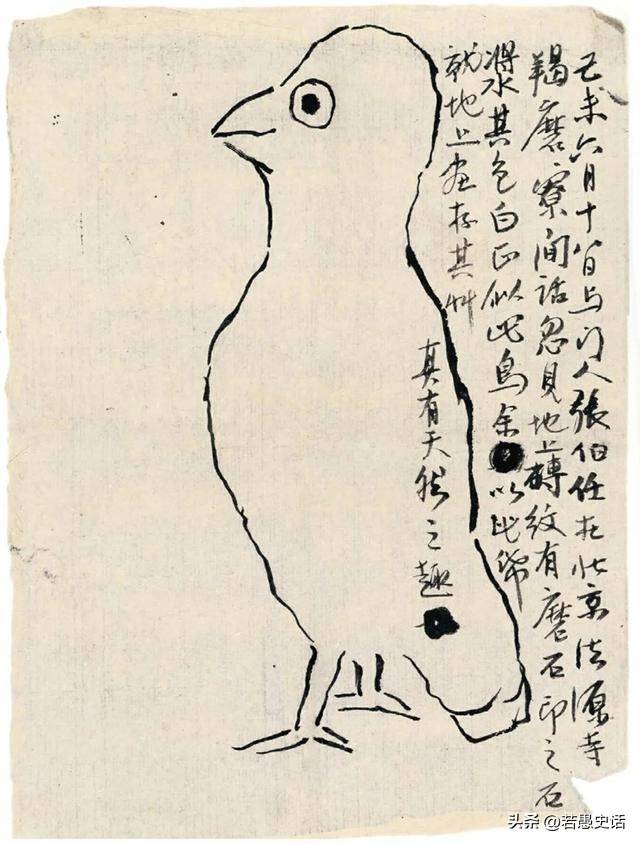 己未六月十八日与门人張伯任在北京法源寺
羯磨寮閒話忽見地上磚紋有磨石印之石
漿水其色白正似此鳥余以此紙
就地上畫存其艸
真有天然之趣
头条 @若愚史话